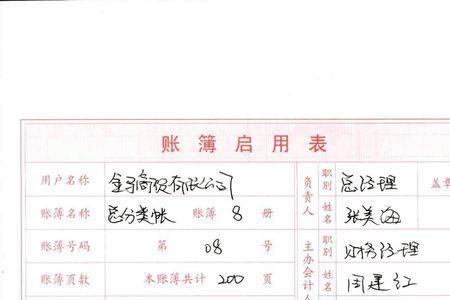 账簿启用表
用户名称 金子商贸有限公司 负责人 职别 总经理 盖章
账簿名称 总分类帐 账簿 8 册 姓名 张美海
账簿号码 第 08 号 主办会计人 职别 财务经理
账簿页数 本账簿共计 200 页 姓名 周建红